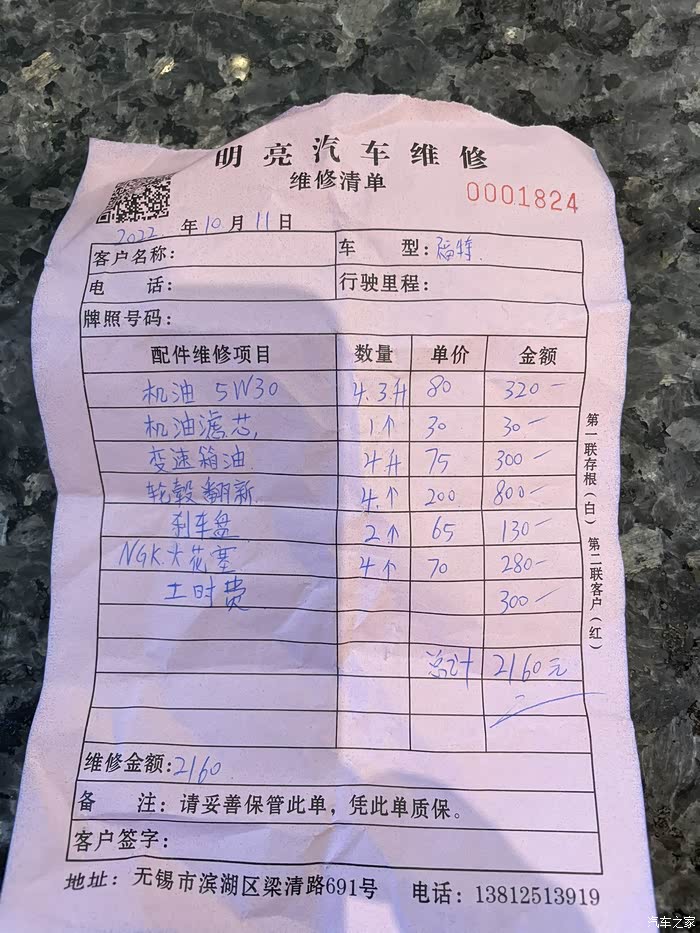 明亮汽车维修
维修清单
0001824
2022 年 10 月 11 日
客户名称： 车 型：福特
电 话： 行驶里程：
牌照号码：
配件维修项目 数量 单价 金额
机油 5W30 4.3升 80 320-
机油滤芯 1个 30 30-
变速箱油 4升 75 300-
轮毂翻新 4个 200 800-
刹车盘 2个 65 130-
NGK火花塞 4个 70 280-
工时费 300-
总计 2160元
维修金额：2160
备 注：请妥善保管此单，凭此单质保。
客户签字：
地址：无锡市滨湖区梁清路691号 电话：13812513919
第一联存根（白） 第二联客户（红）
汽车之家